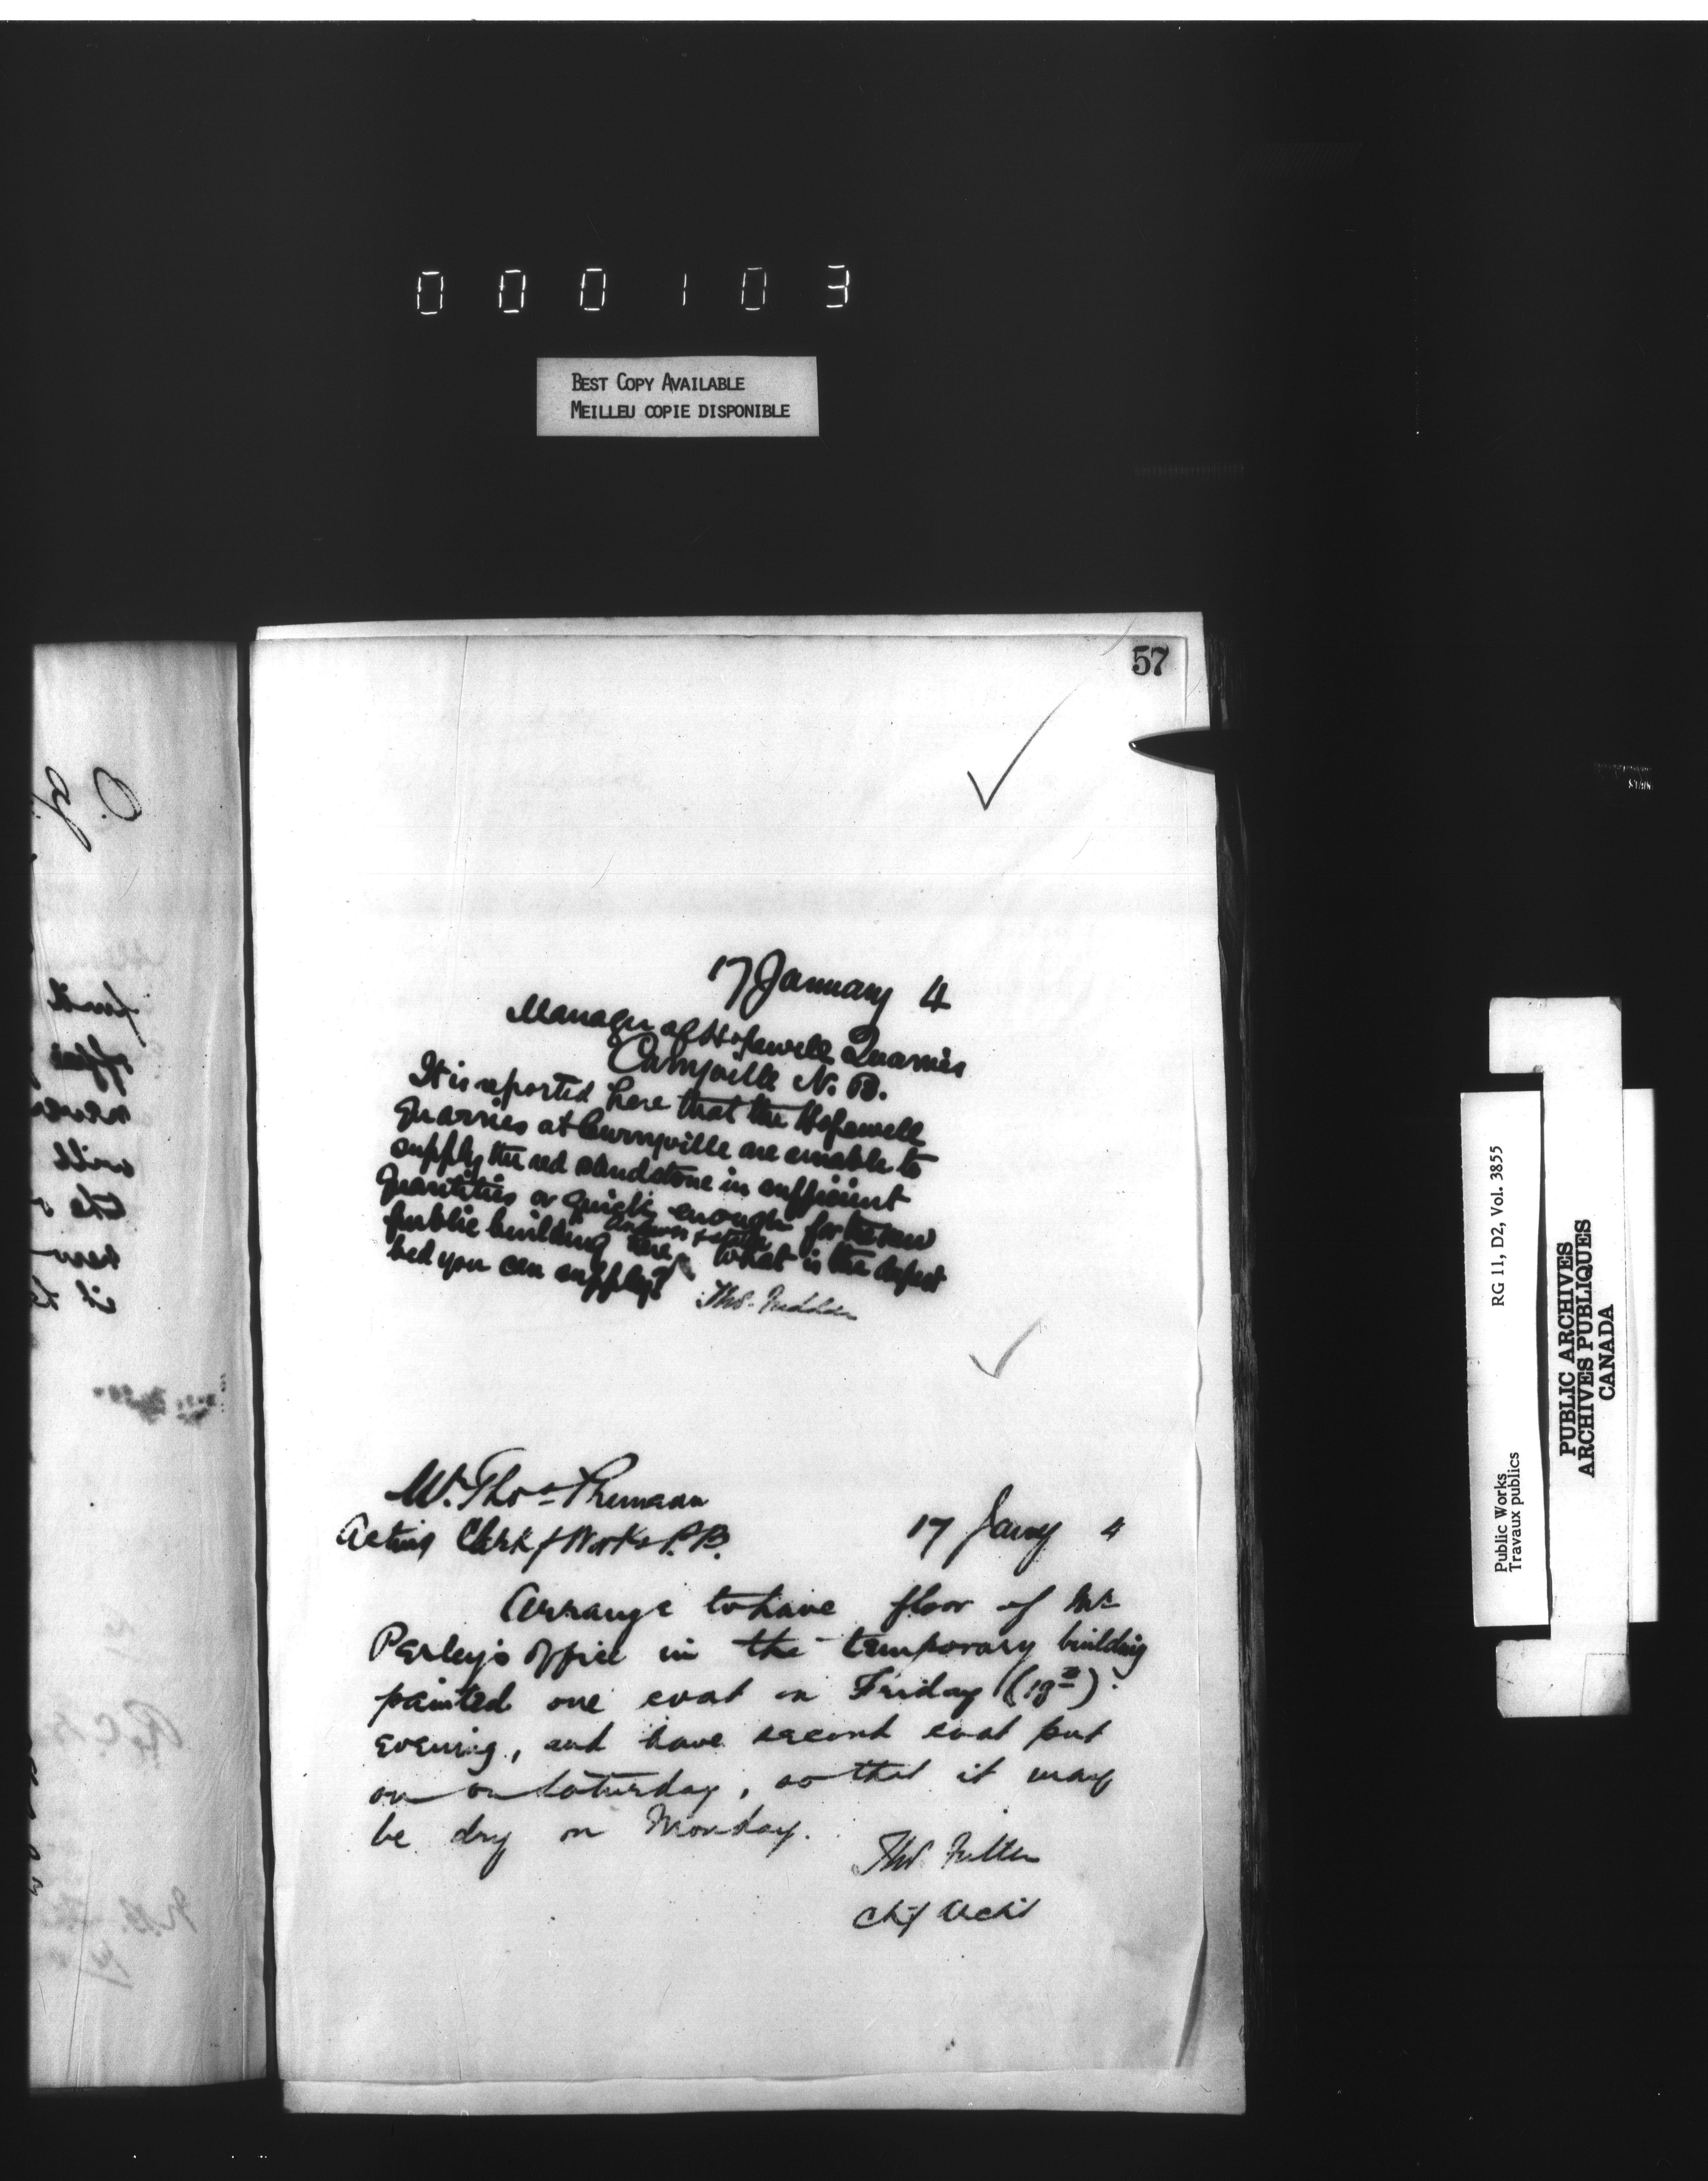 000103
BEST COPY AVAILABLE
MEILLEU COPIE DISPONIBLE
57
17 January 4
Manager of Hopewell Quarries
Curryville N. B.
It is reported here that the Hopewell
quarries at Curryville are unable to
supply the red sandstone in sufficient
quantities or quick enough for the new
public building here answer & state What is the deepest
bed you can supply?
Thos.
Mr. Thos
Acting Clerk of Works P.B.
17 Jany 4
Arrange to have floor of Mr
Perley's office in the temporary building
painted one coat on Friday (18th)
evening, and have second coat put
on on Saturday, so that it may
be dry on Monday.
Thos Fuller
Chf Archt
Public Works
Travaux publics
RG 11, D2, Vol. 3855
PUBLIC ARCHIVES
ARCHIVES PUBLIQUES
CANADA